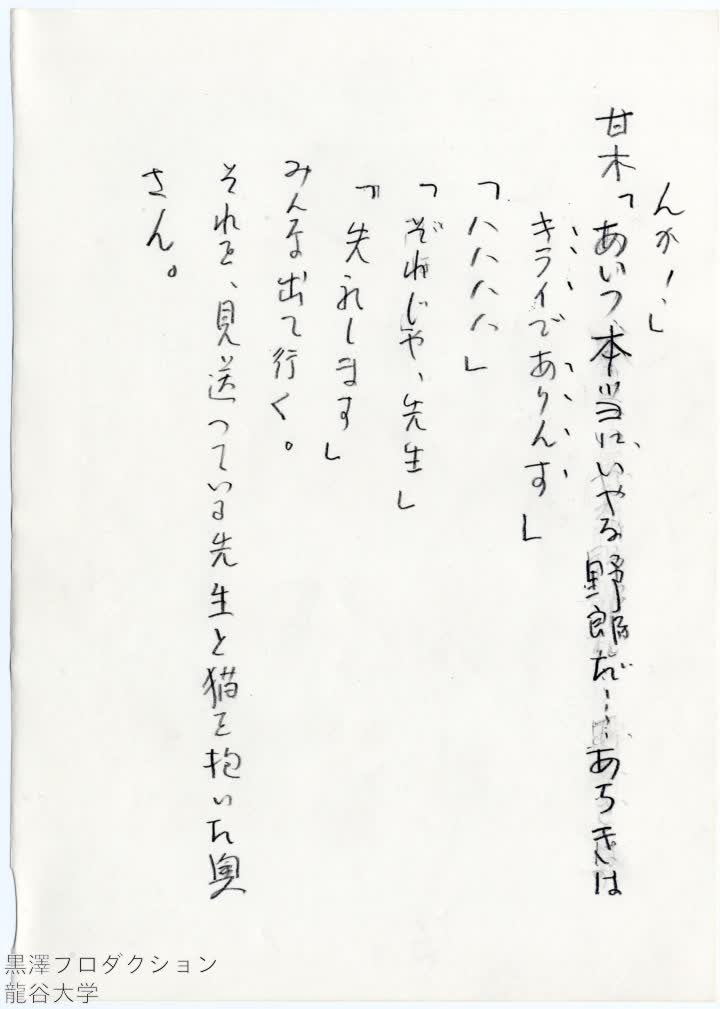 んか！」
甘木「あいつ、本当に、いやな野郎だ……あちきは
キライでありんす」
「ハハハハ」
「それじゃ、先生」
「失礼します」
みんな出て行く。
それを、見送っている先生と猫を抱いた奥
さん。
黒澤プロダクション
龍谷大学